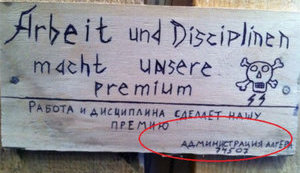 Arbeit und Disciplinen
macht unsere
premium
РАБОТА И ДИСЦИПЛИНА СДЕЛАЕТ НАШУ
ПРЕМИЮ
АДМИНИСТРАЦИЯ
74507